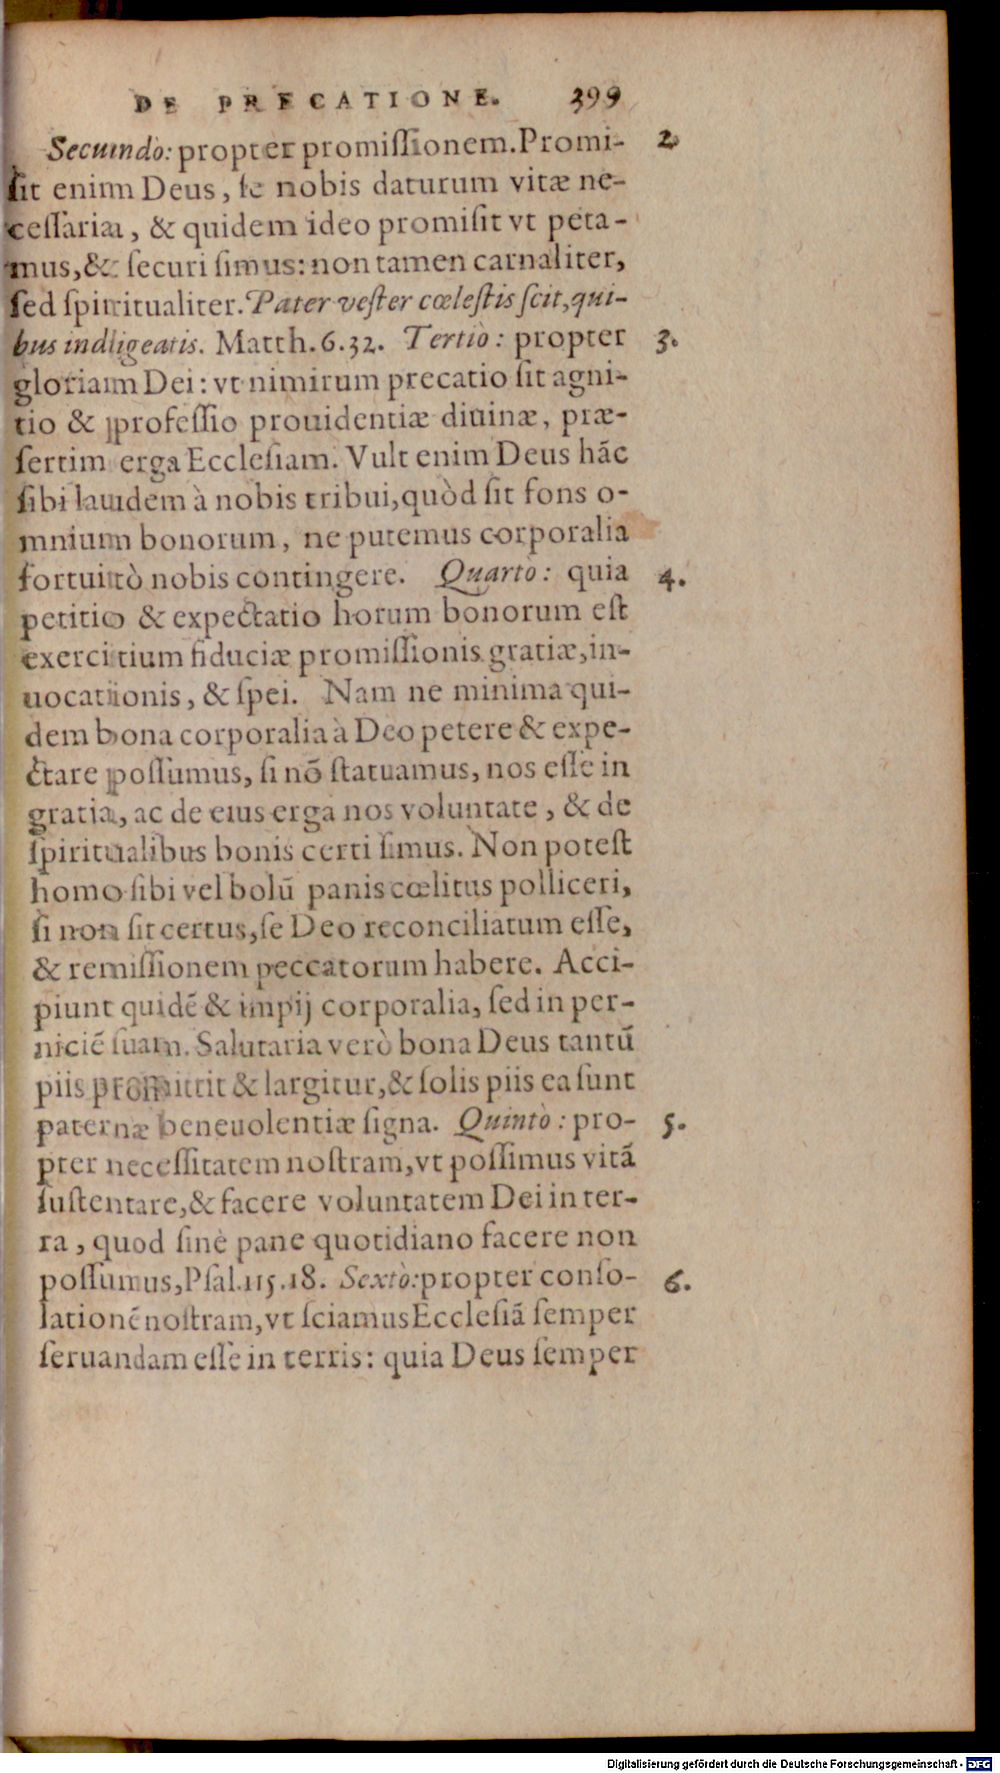 DE PRECATIONE. 399
Secundò: propter promiſſionem. Promi- 2.
ſit enim Deus, ſe nobis daturum vitæ ne-
ceſſaria, & quidem ideo promiſit vt peta-
mus, & ſecuri ſimus: non tamen carnaliter,
ſed ſpiritualiter. Pater veſter cœleſtis ſcit, qui-
bus indigeatis. Matth. 6.32. Tertiò: propter 3.
gloriam Dei: vt nimirum precatio ſit agni-
tio & profeſſio prouidentiæ diuinæ, præ-
ſertim erga Eccleſiam. Vult enim Deus hãc
ſibi laudem à nobis tribui, quòd ſit fons o-
mnium bonorum, ne putemus corporalia
fortuitò nobis contingere. Quartò: quia 4.
petitio & expectatio horum bonorum eſt
exercitium fiduciæ promiſſionis gratiæ, in-
uocationis, & ſpei. Nam ne minima qui-
dem bona corporalia à Deo petere & expe-
ctare poſſumus, ſi nõ ſtatuamus, nos eſſe in
gratia, ac de eius erga nos voluntate, & de
ſpiritualibus bonis certi ſimus. Non poteſt
homo ſibi vel bolũ panis cœlitus polliceri,
ſi non ſit certus, ſe Deo reconciliatum eſſe,
& remiſſionem peccatorum habere. Acci-
piunt quidẽ & impij corporalia, ſed in per-
niciẽ ſuam. Salutaria verò bona Deus tantũ
piis promittit & largitur, & ſolis piis ea ſunt
paternæ beneuolentiæ ſigna. Quintò: pro- 5.
pter neceſſitatem noſtram, vt poſſimus vitã
ſuſtentare, & facere voluntatem Dei in ter-
ra, quod ſine pane quotidiano facere non
poſſumus, Pſal. 115.18. Sextò: propter conſo- 6.
lationẽ noſtram, vt ſciamus Eccleſiã ſemper
ſeruandam eſſe in terris: quia Deus ſemper
Digitalisierung gefördert durch die Deutsche Forschungsgemeinschaft - DFG